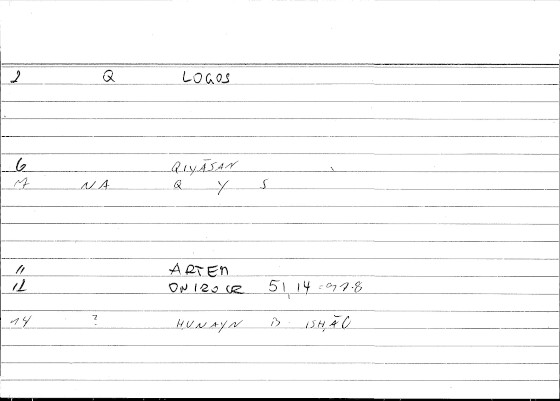 1 Q LOGOS
6 QIYĀSAN
M NA Q Y S
11 ARTEM
12 ONIROCR 51,14
14 ? ḤUNAYN B ISḤĀQ